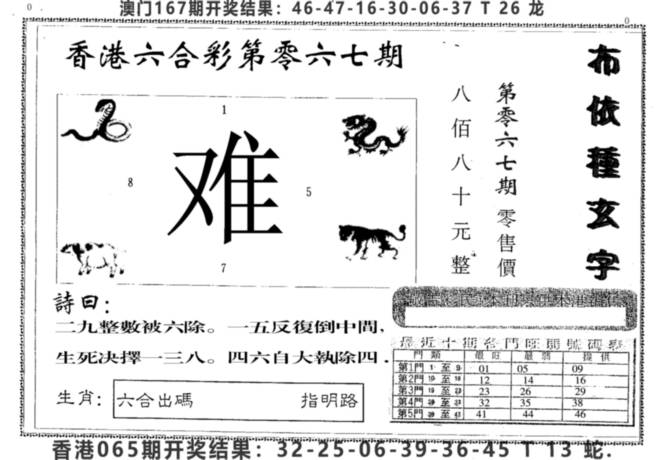 澳门167期开奖结果：46-47-16-30-06-37 T 26 龙
0
0
香港六合彩第零六七期
布依種玄字
第零六七期零售價
八佰八十元整
1
难
8
5
7
詩曰：
二九整數被六除。一五反復倒中間，
生死决擇一三八。四六自大執除四．
生肖：
六合出碼 指明路
最近十期各門旺開號碼
門類 最旺 最弱 提供
第1門 1 至 9 01 05 09
第2門 至 12 14 16
第3門 至 23 26 29
第4門 至 32 35 38
第5門 至 41 44 46
香港065期开奖结果：32-25-06-39-36-45 T 13 蛇.